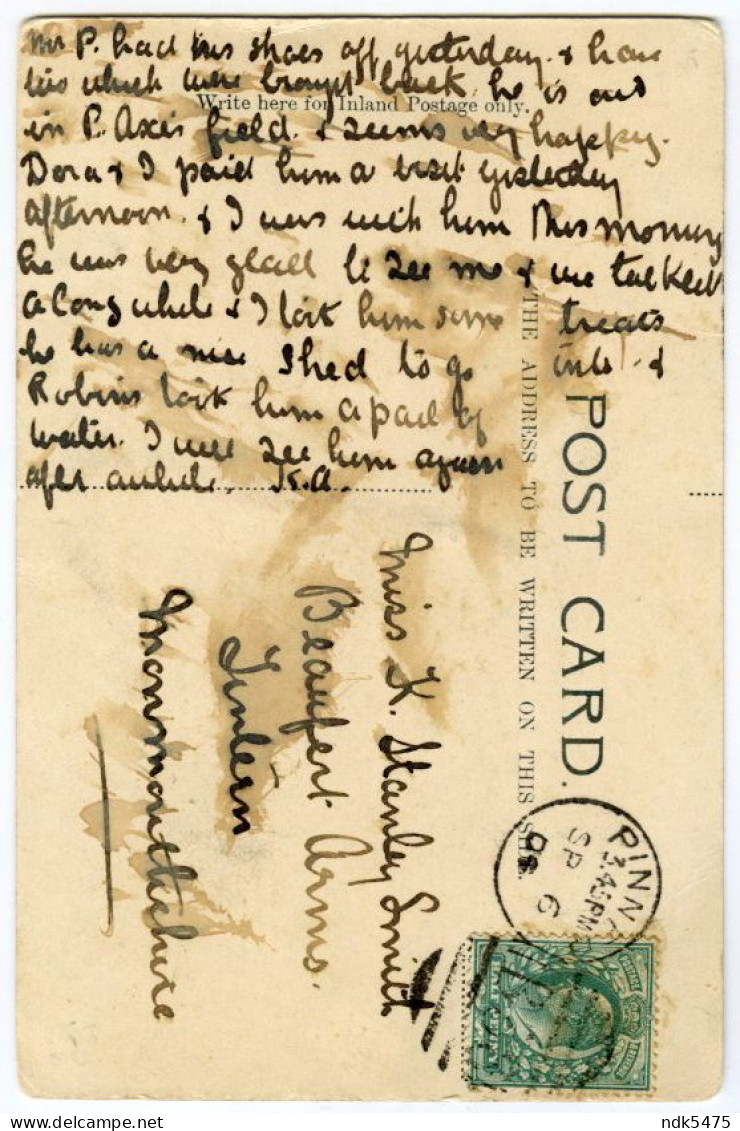 Mr P. had his shoes off yesterday. & have
his which were brought back he is out
Write here for Inland Postage only.
in P. Axes field. & seems very happy.
Dora & I paid him a visit yesterday
afternoon. & I was with him this morning
he was very glad to see me & we talked
a long while & I took him some treats
he has a nice shed to go into. &
Robins took him a pail of
water. I will see him again
after awhile. K.A.
POST CARD.
THE ADDRESS TO BE WRITTEN ON THIS SIDE.
Miss K. Stanley Smith
Beaufort Arms.
Tintern
Monmouthshire
PINN
3.45PM
SP 6
ndk5475